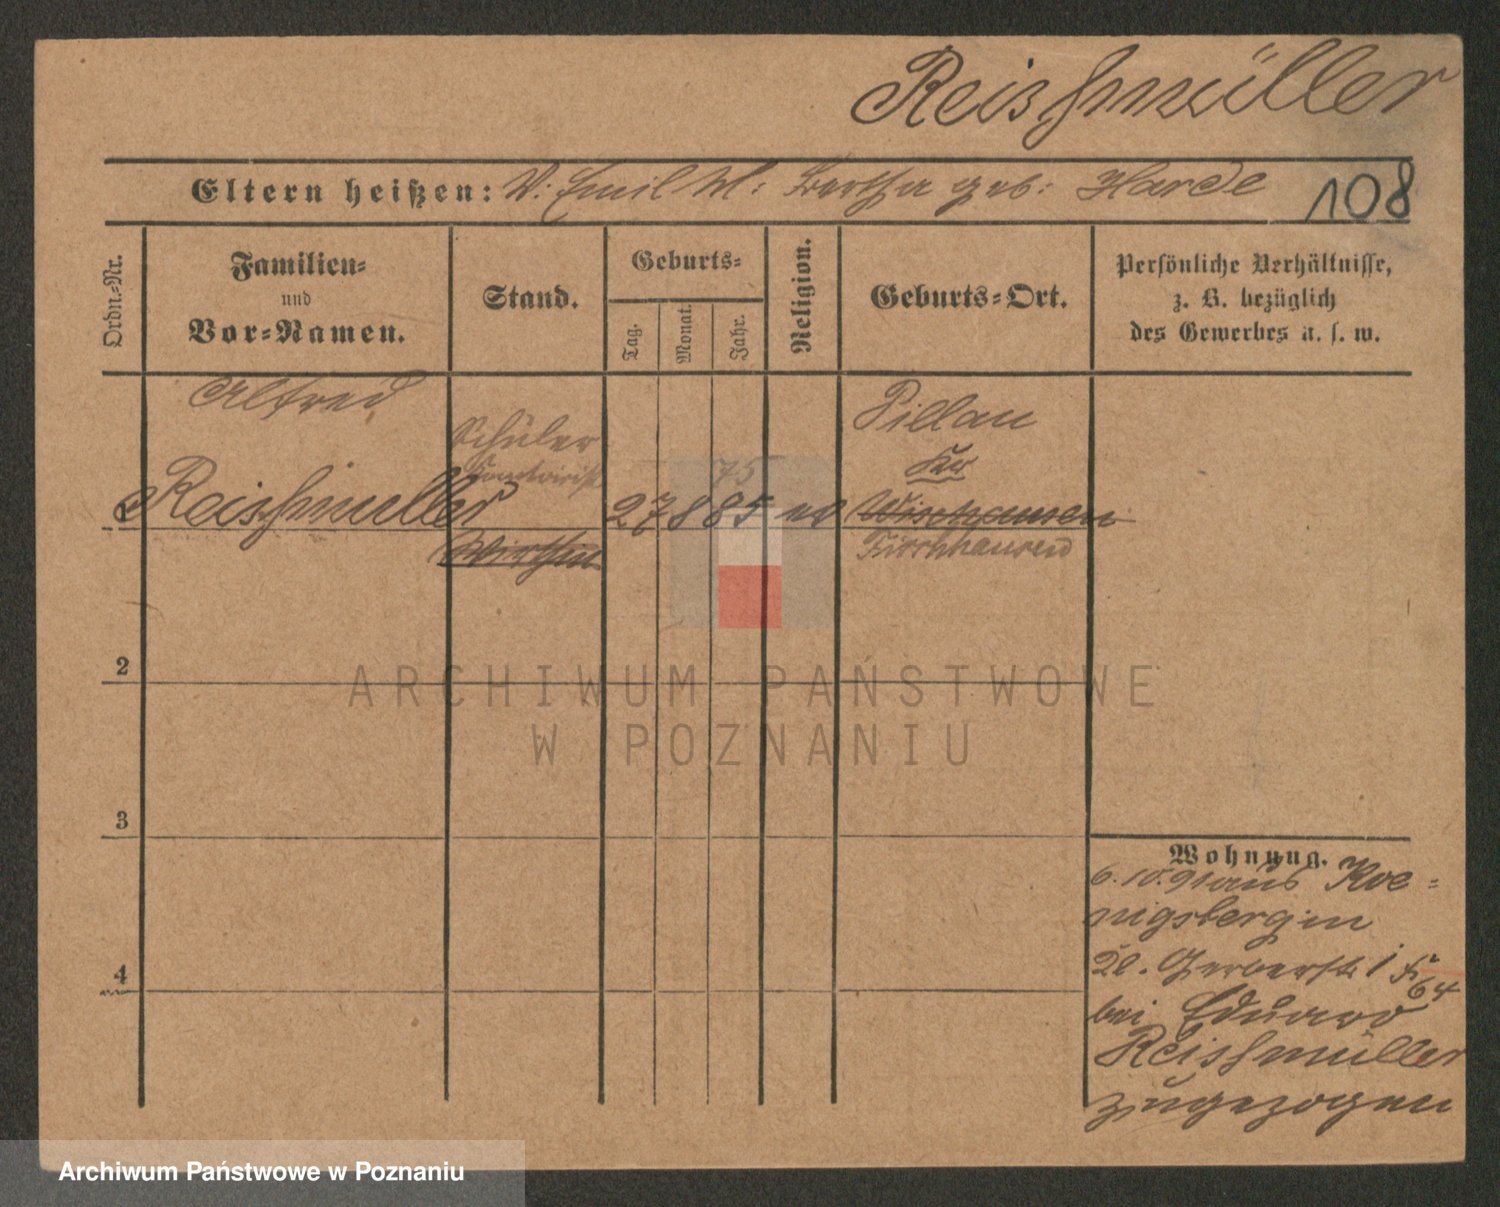 Reishmüller
Eltern heißen: V. Emil M: Bertha geb: Harde
108
Ordn.-Nr.
Familien-
und
Vor-Namen.
Stand.
Geburts-
Tag.
Monat.
Jahr.
Religion.
Geburts-Ort.
Persönliche Verhältnisse,
z. B. bezüglich
des Gewerbes u. s. w.
Alfred
Reishmuller
Schüler
Wirthin
75
27 8 85
Pillau
Fischhausen
2
3
4
Wohnung.
6.10.91 aus Koe-
nigsberg in
Gerberstr. 1
64
bei Eduard
Reishmüller
zugezogen
ARCHIWUM PAŃSTWOWE
W POZNANIU
Archiwum Państwowe w Poznaniu